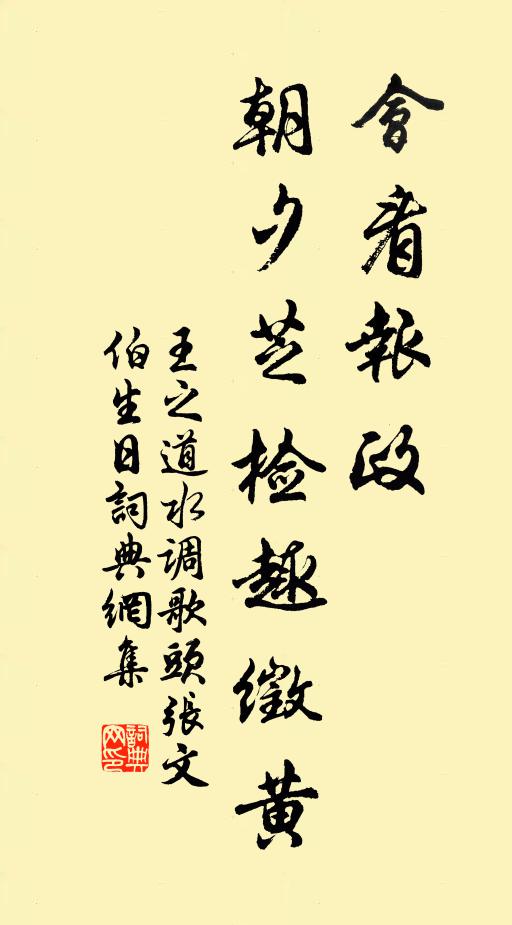 會看報政
朝夕芝检趣徵黄
王之道水调歌頭張文
伯生日詞典網集
詞典
网印